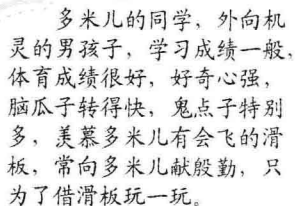 多米儿的同学，外向机
灵的男孩子，学习成绩一般，
体育成绩很好，好奇心强，
脑瓜子转得快，鬼点子特别
多，羡慕多米儿有会飞的滑
板，常向多米儿献殷勤，只
为了借滑板玩一玩。